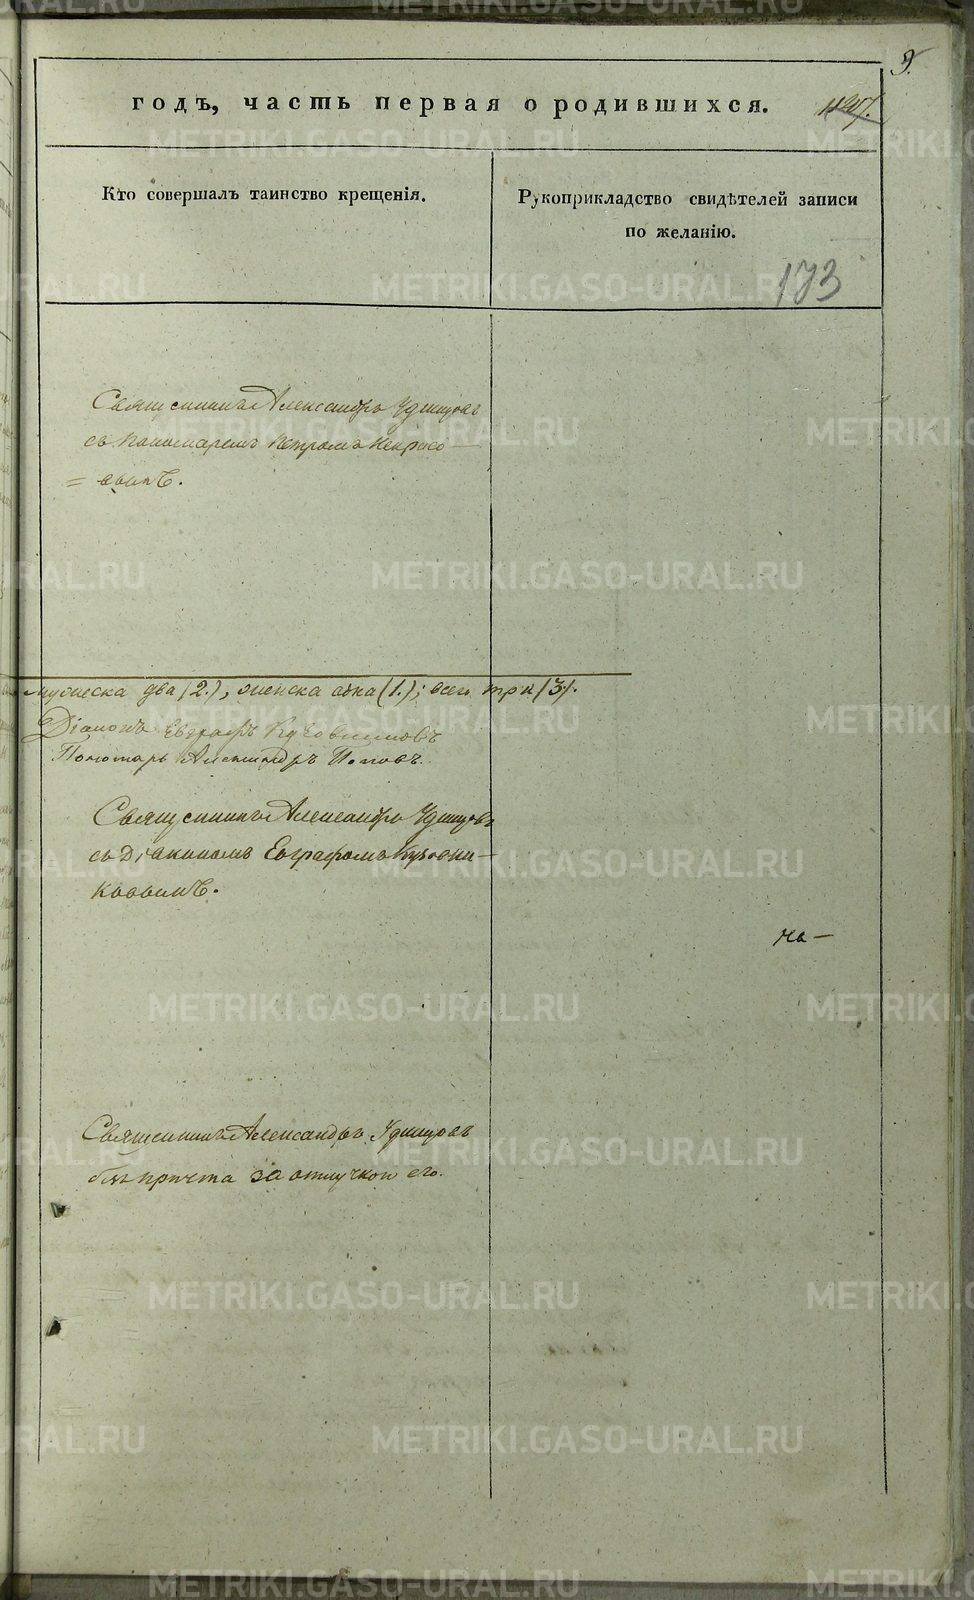 9.
годъ, часть первая о родившихся.
Кто совершалъ таинство крещенія.
Рукоприкладство свидѣтелей записи
по желанію.
173
Священникъ Александръ Удинцовъ
съ пономаремъ Петромъ Некрасо
= вымъ.
мужеска два (2.), женска одна (1.); всего три (3).
Діаконъ Евграфъ Кузовниковъ
Пономарь Александръ Поповъ.
Священникъ Александръ Удинцовъ
съ Діакономъ Евграфомъ Кузовни-
ковымъ.
на-
Священникъ Александръ Удинцовъ
безъ причта за отлучкой его.
METRIKI.GASO-URAL.RU